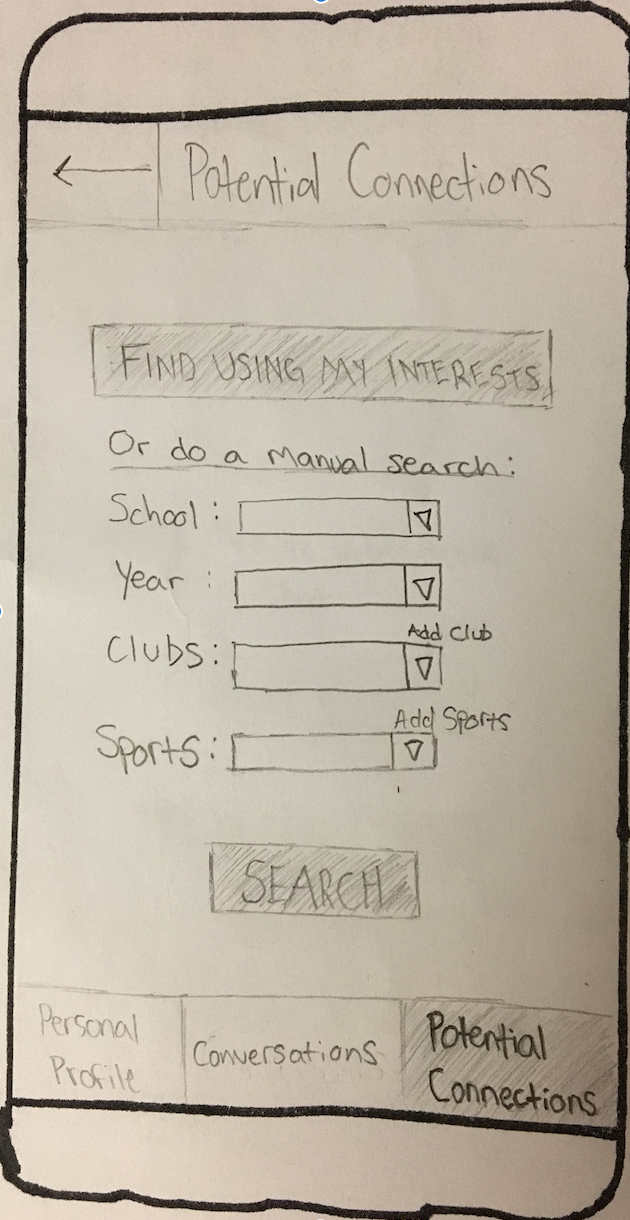 Potential Connections
FIND USING MY INTERESTS
Or do a manual search:
School:
Year :
Add Club
Clubs:
Add Sports
Sports:
SEARCH
Personal
Profile
Conversations
Potential
Connections